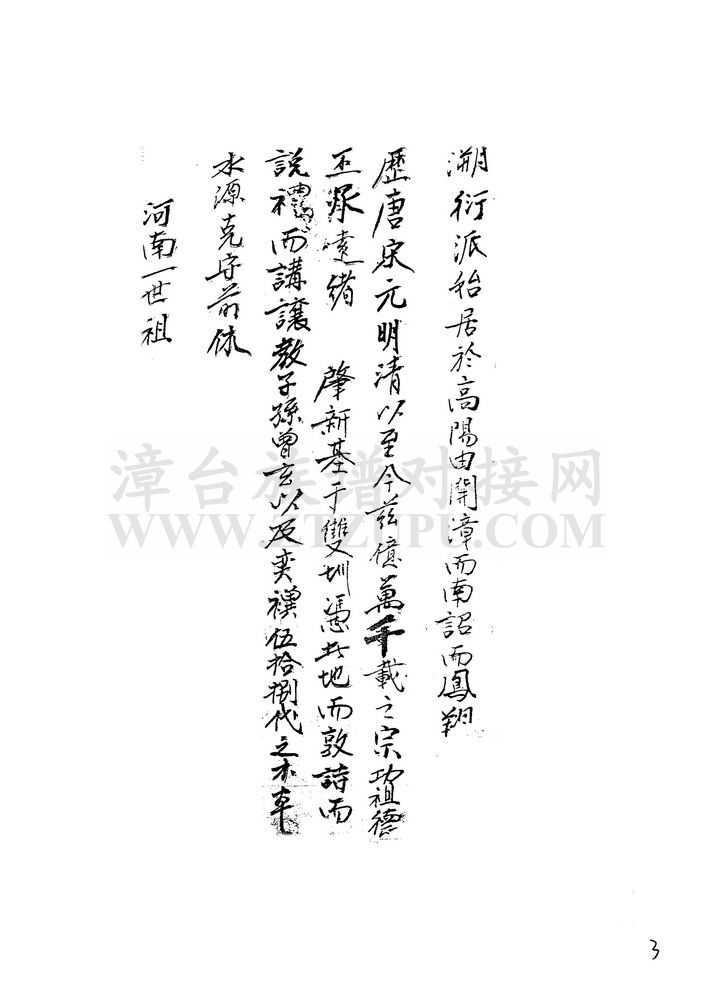 溯衍派始居於高陽由開漳而南詔而鳳翔
歷唐宋元明清以至今茲億萬千載之宗功祖德
丕承遠緒 肇新基于雙圳憑此地而敦詩而
說禮而講讓教子孫曾玄以及奕禩伍拾捌代之木本
水源克守前休
河南一世祖
漳台族谱对接网
WWW.ZTZUPU.COM
3